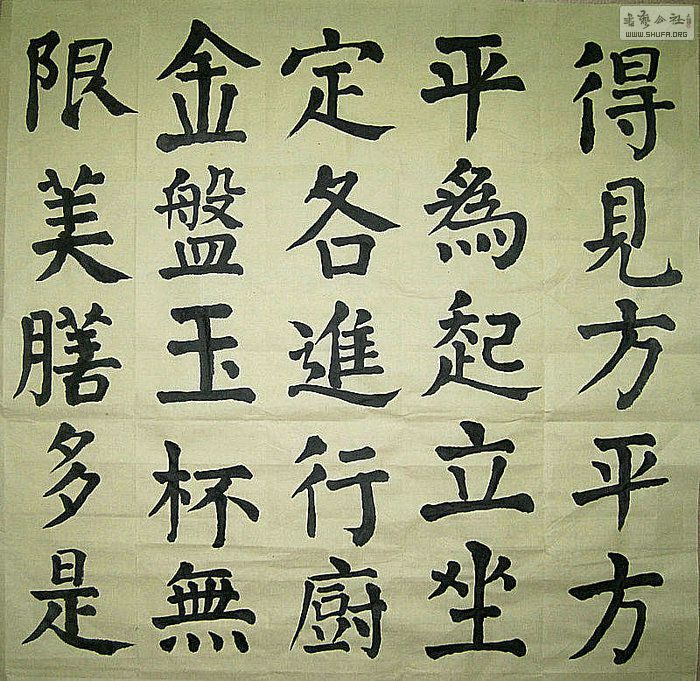 得見方平方
平爲起立坐
定各進行廚
金盤玉杯無
限美膳多是
書藝公社
WWW.SHUFA.ORG